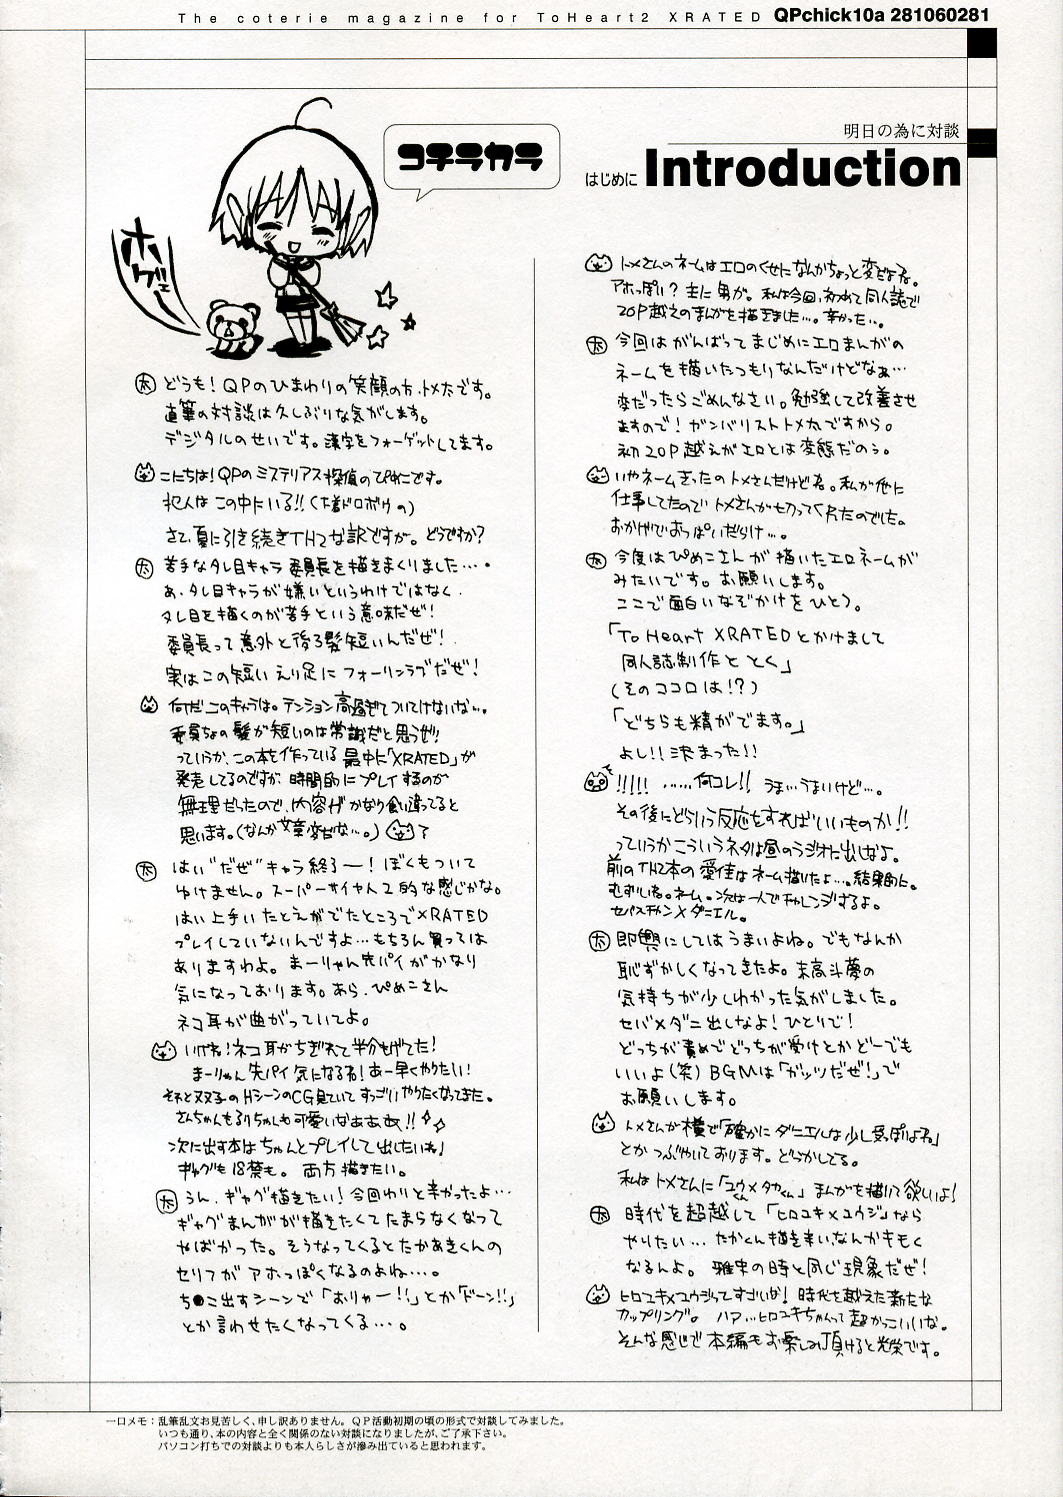 The coterie magazine for ToHeart2 XRATED QPchick10a 281060281
明日の為に対談
はじめに Introduction
コチラカラ
ホゲェー
太 どうも！QPのひまわりの笑顔の方、トメ太です。
直筆の対談は久しぶりな気がします。
デジタルのせいです。漢字をフォーゲットしてます。
こにちは！QPのミステリアス探偵のぴめこです。
犯人はこの中にいる!!（下着ドロボウの）
さて、夏に引き続きTH2な訳ですが。どうですか？
太 苦手なタレ目キャラ委員長を描きまくりました…。
あ、タレ目キャラが嫌いというわけではなく、
タレ目を描くのが苦手という意味だぜ！
委員長って意外と後ろ髪短いんだぜ！
実はこの短いえり足にフォーリンラブだぜ！
何だこのキャラは。テンション高過ぎてついてけないな…。
委員ちょの髪が短いのは常識だと思うぜ!!
っていうか、この本を作っている最中に「XRATED」が
発売してるのですが、時間的にプレイするのが
無理だったので、内容がかなり食い違ってると
思います。（なんか文章変だな…。）？
太 はい“だぜ”キャラ終了ー！ぼくもついて
ゆけません。スーパーサイヤ人2的な感じかな。
はい上手いたとえがでたところでXRATED
プレイしていないんですよ…もちろん買っては
ありますわよ。まーりゃん先パイがかなり
気になっております。あら、ぴめこさん
ネコ耳が曲がっていてよ。
いけね！ネコ耳がちぎれて半分もげてた！
まーりゃん先パイ気になるネ！あー早くやりたい！
それと双子のHシーンのCG見ていてすっごいやりたくなってきた。
さんちゃんもるりちゃんも可愛いなあああ!!
次に出す本はちゃんとプレイして出したいね！
ギャグも18禁も。両方描きたい。
太 うん、ギャグ描きたい！今回わりと辛かったよ…
ギャグまんがが描きたくてたまらなくなって
やばかった。そうなってくるとたかあきくんの
セリフがアホっぽくなるのよね…。
ち●こ出すシーンで「おりゃー!!」とか「ドーン!!」
とか言わせたくなってくる…。
トメさんのネームはエロのくせになんかちょっと変だよね。
アホっぽい？主に男が。私は今回、初めて同人誌で
20P越えのまんがを描きました…。辛かった…。
太 今回はがんばってまじめにエロまんがの
ネームを描いたつもりなんだけどなぁ…
変だったらごめんなさい。勉強して改善させ
ますので！ガンバリストトメ太ですから。
初20P越えがエロとは変態だのぅ。
いやネームきったのトメさんだけどね。私が他に
仕事してたのでトメさんが切ってくれたのでした。
おかげでおっぱいだらけ…。
太 今度はぴめこさんが描いたエロネームが
みたいです。お願いします。
ここで面白いなぞかけをひとつ。
「To Heart XRATEDとかけまして
同人誌制作ととく」
（そのココロは!？）
「どちらも精がでます。」
よし!!決まった!!
!!!!!……何コレ!!うま…うまいけど…。
その後にどういう反応をすればいいものか!!
っていうかこういうネタは昼のラジオに出しなよ。
前のTH2本の愛佳はネーム描いたよ…。結果的に。
むずいね。ネーム。次は一人でチャレンジするよ。
セバスチャン×ダニエル。
太 即興にしてはうまいよね。でもなんか
恥ずかしくなってきたよ。末高斗夢の
気持ちが少しわかった気がしました。
セバ×ダニ出しなよ！ひとりで！
どっちが責めでどっちが受けとかどーでも
いいよ（笑）BGMは「ガッツだぜ！」で
お願いします。
トメさんが横で「確かにダニエルは少し受っぽいよね」
とかつぶやいております。どうかしてる。
私はトメさんに「ユウくん×タカくん」まんがを描いて欲しいよ！
太 時代を超越して「ヒロユキ×ユウジ」なら
やりたい…たかくん描き辛い、なんかキモく
なるんよ。雅史の時と同じ現象だぜ！
ヒロユキ×ユウジってすごいな！時代を越えた新たな
カップリング。ハァ…ヒロユキちゃんって超かっこいいな。
そんな感じで本編もお楽しみ頂けると光栄です。
一口メモ：乱筆乱文お見苦しく、申し訳ありません。QP活動初期の頃の形式で対談してみました。
いつも通り、本の内容と全く関係のない対談になりましたが、ご了承下さい。
パソコン打ちでの対談よりも本人らしさが滲み出ていると思われます。